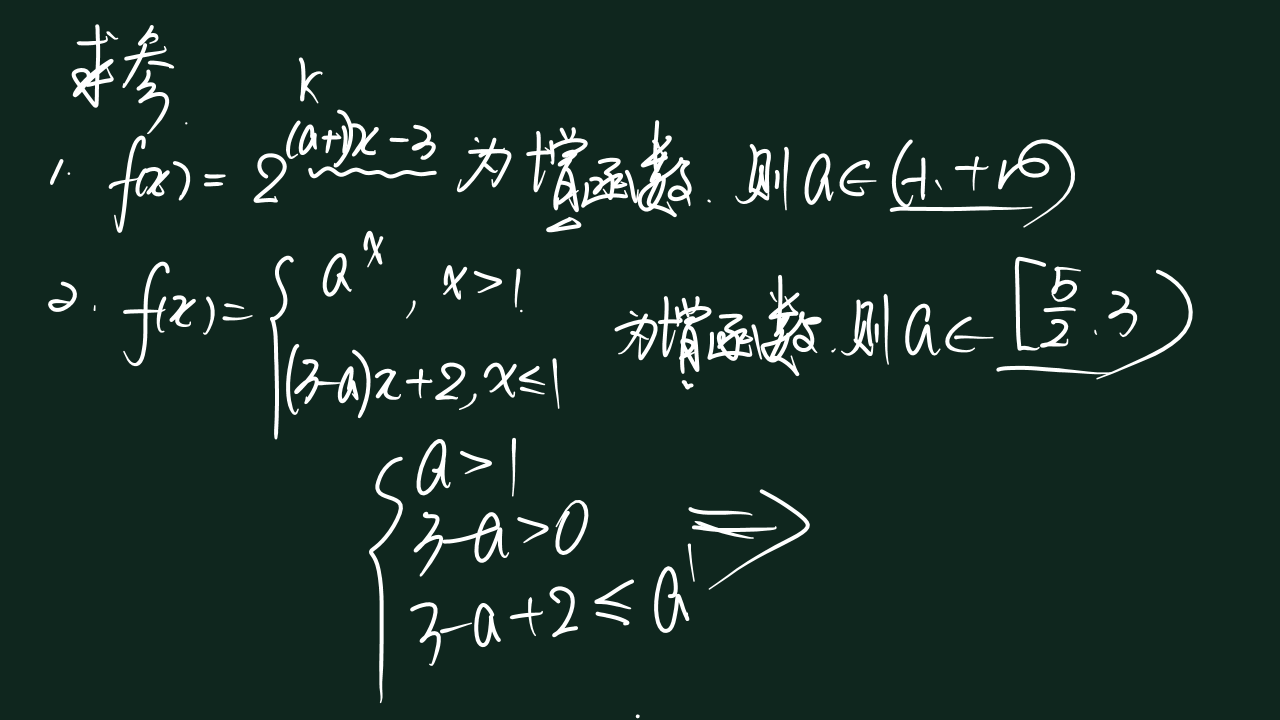 求参
k
1. f(x) = 2^{(a+1)x-3} 为增函数. 则 a∈(-1, +∞)
2. f(x) = { a^x, x>1
(3-a)x+2, x≤1
为增函数. 则 a∈[5/2, 3)
{ a>1
3-a>0 ⇒
3-a+2≤a^1